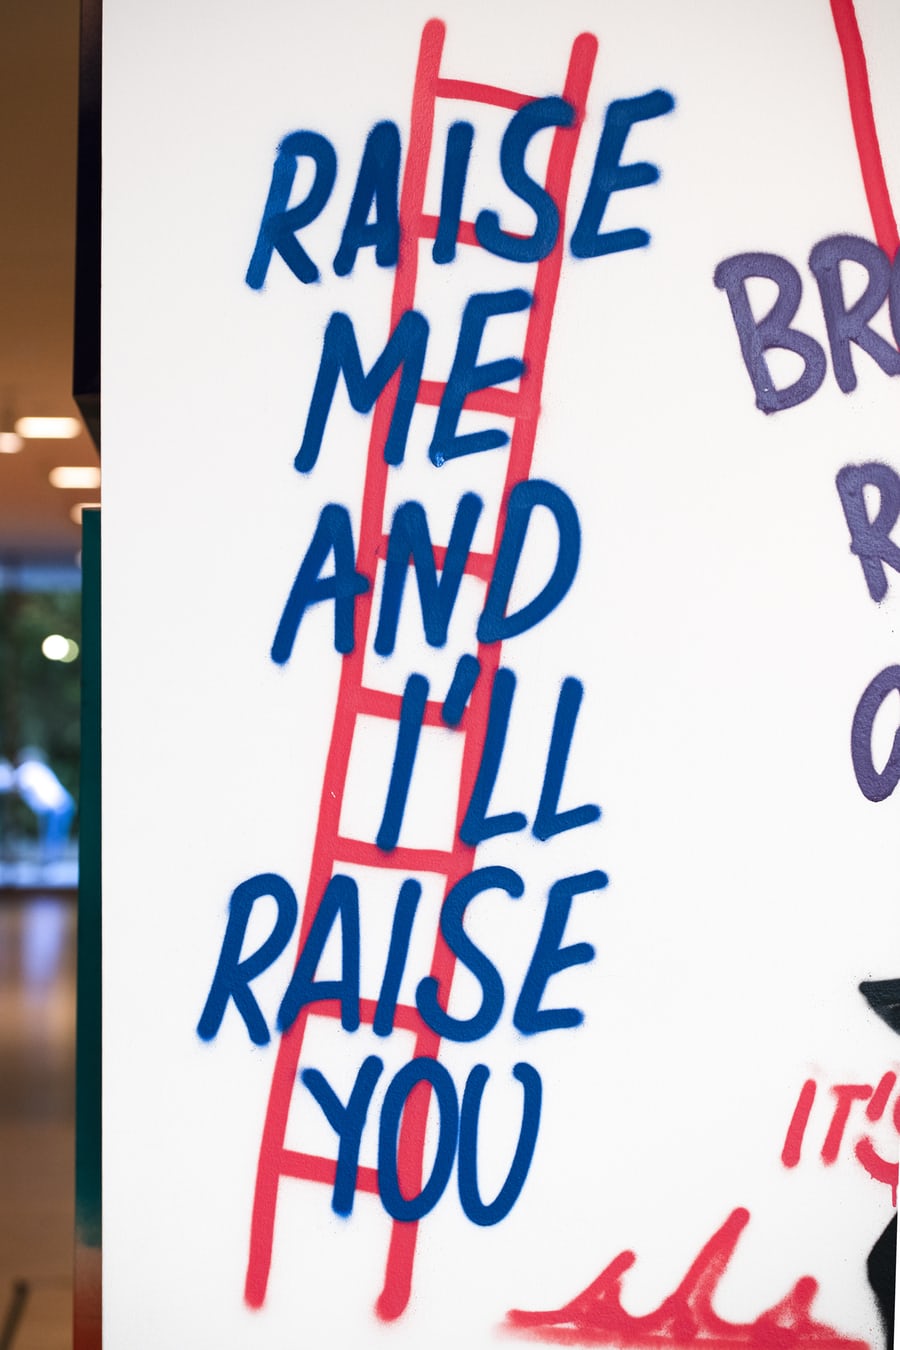 RAISE
ME
AND
I'LL
RAISE
YOU
IT'S